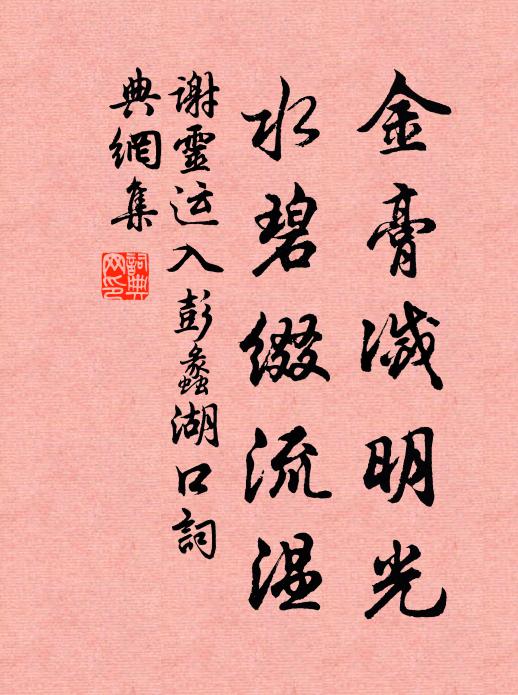 金膏滅明光
水碧綴流温
謝靈运入彭蠡湖口詞
典網集
詞典网印